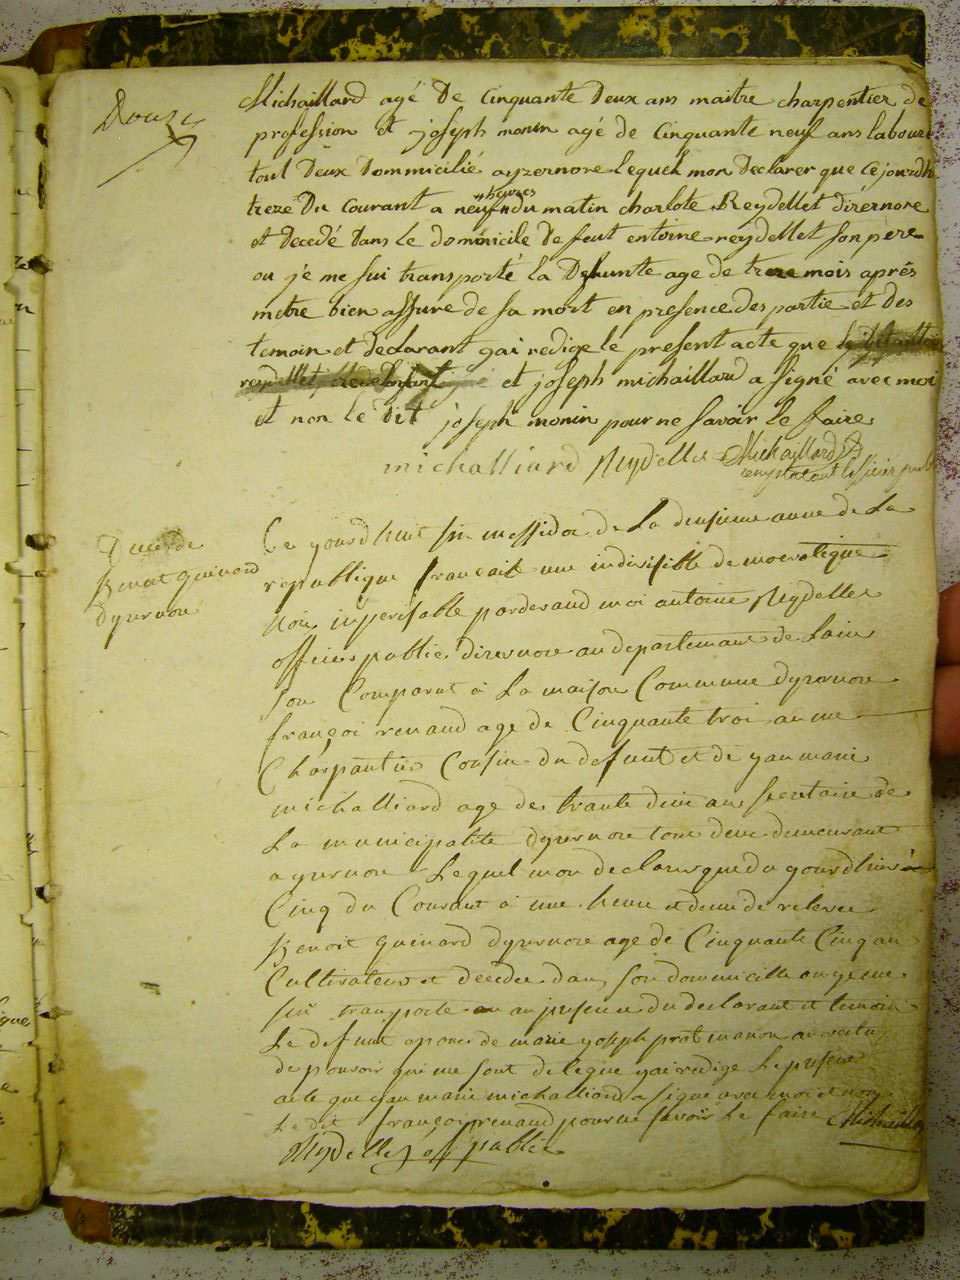 Douze
Michaillard agé De Cinquante Deux ans maitre charpentier de
profession et joseph monin agé de Cinquante neuf ans laboure
tout Deux Dommicilié ayzernore lequel mon Declarer que ce jourdh
treze Du Courant a neuf heures du matin charlote Reydellet dizernore
et Decedé Dans le dominicile De feut entoine reydellet son père
ou je me sui transporté la Defunte age de treze mois aprés
metre bien assure de sa mort en presence des partie et des
temoin et declarant jai redige le present acte que
reydellet et joseph michaillard a signé avec moi
et non le dit joseph monin pour ne savoir le faire
michalliard Reydellet Michaillard
Deces de
Benoit guinard
dyzernore
Ce jourdhuit six messidor de La deusieme anne de La
republique francaise une indivisible de mocratique
Noie imperisable pardevand moi antoine Reydellet
officier public dizernore au departemant de Lain
son Comparut à La maison Commune dyzernore
françoi renaud age de Cinquante troi an me
Charpantier Cousin du defunt et de jan marie
michalliard age de trante deux an secretaire de
La municipalite dyzernore tous deux demeurant
a yzernore Lequel mon declarer que du jourdhuis
Cinq du Courant à une heure et demi de relevee
Benoit guinard dyzernore age de Cinquante Cinq an
Cultivateur et decedee dans son dommicille ou je me
sui transporte au presence du declarant et temoin
Le defunt epoux de marie joseph pont manon
de pouvoir qui me sont delegue jai redige Le present
acte que jan marie michalliard a signe avec moi et non
Le dit françoi renaud pour ne savoir Le faire Michaillard
Reydellet off public